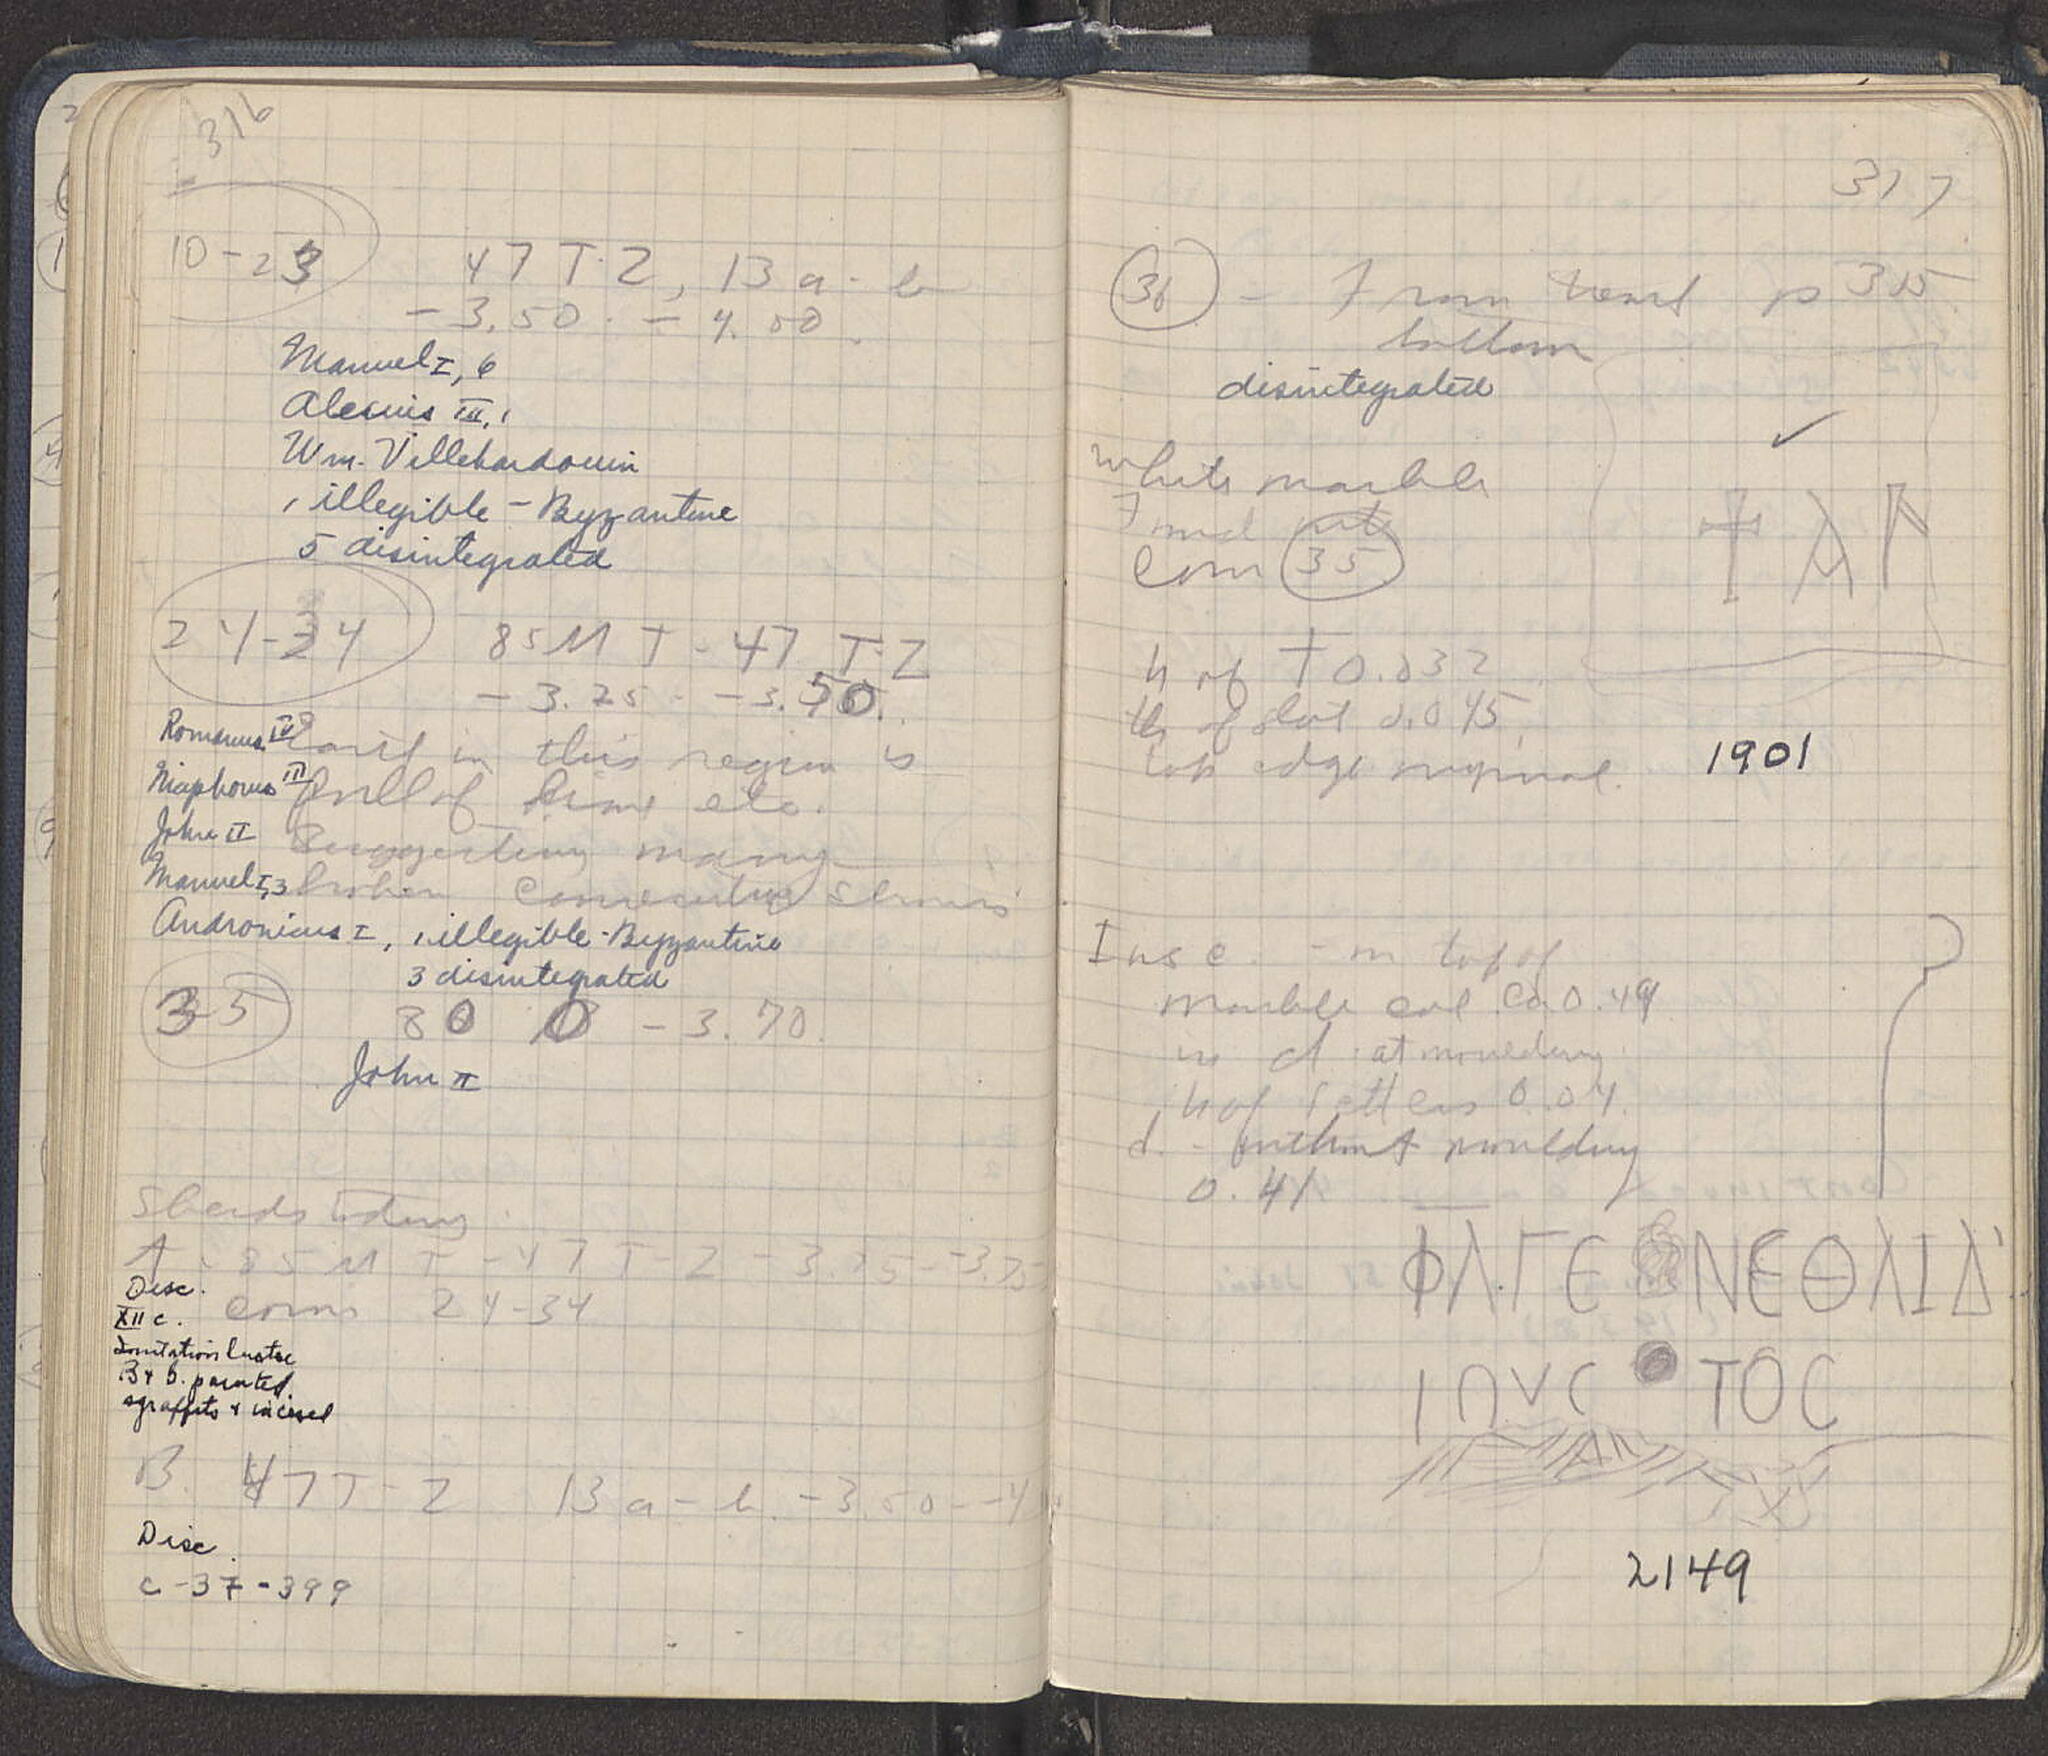 316
10-23 47 T-Z, 13 a-b
-3.50 - -4.00
Manuel I, 6
Alexius III, 1
Wm. Villehardouin
1 illegible - Byzantine
5 disintegrated
24-34 85 M T - 47 T-Z
-3.25 - -3.50
Romanus IV
Earth in this region is
Nicephorus III
full of lime etc.
John II
Suggesting many
Manuel I, 3
broken consecutive
Andronicus I, 1 illegible - Byzantine
3 disintegrated
35 80 -3.70
John II
Sherds
A. 85 M T - 47 T-Z -3.25 - -3.75
Disc.
coins 24-34
XII c.
Imitation luster
B + b. painted
sgraffito + incised
B. 47 T-Z 13 a-b -3.50 - -4
Disc.
C-37-399
317
36 - From p 315
bottom
disintegrated
white marble
Found with
Coin 35
† Α Ν
h of † 0.032
th of slab 0.045
top edge original.
1901
Insc. - on top of
marble col. ca 0.49
in d. at moulding
h of letters 0.04
d. - without moulding
0.41
ΦΛ.ΓΕ ΝΕΘΛΙΔ'
ΙΠVC ΤΟC
2149